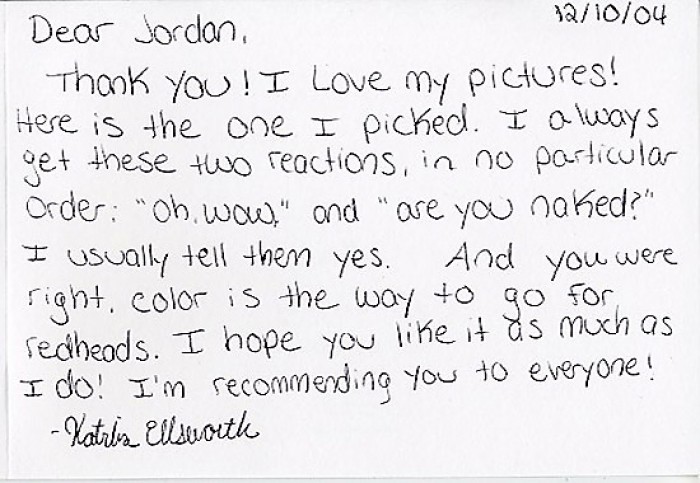 12/10/04
Dear Jordan,
Thank you! I Love my pictures!
Here is the one I picked. I always
get these two reactions, in no particular
order: "Oh, wow," and "are you naked?"
I usually tell them yes. And you were
right, color is the way to go for
redheads. I hope you like it as much as
I do! I'm recommending you to everyone!
- Ellsworth